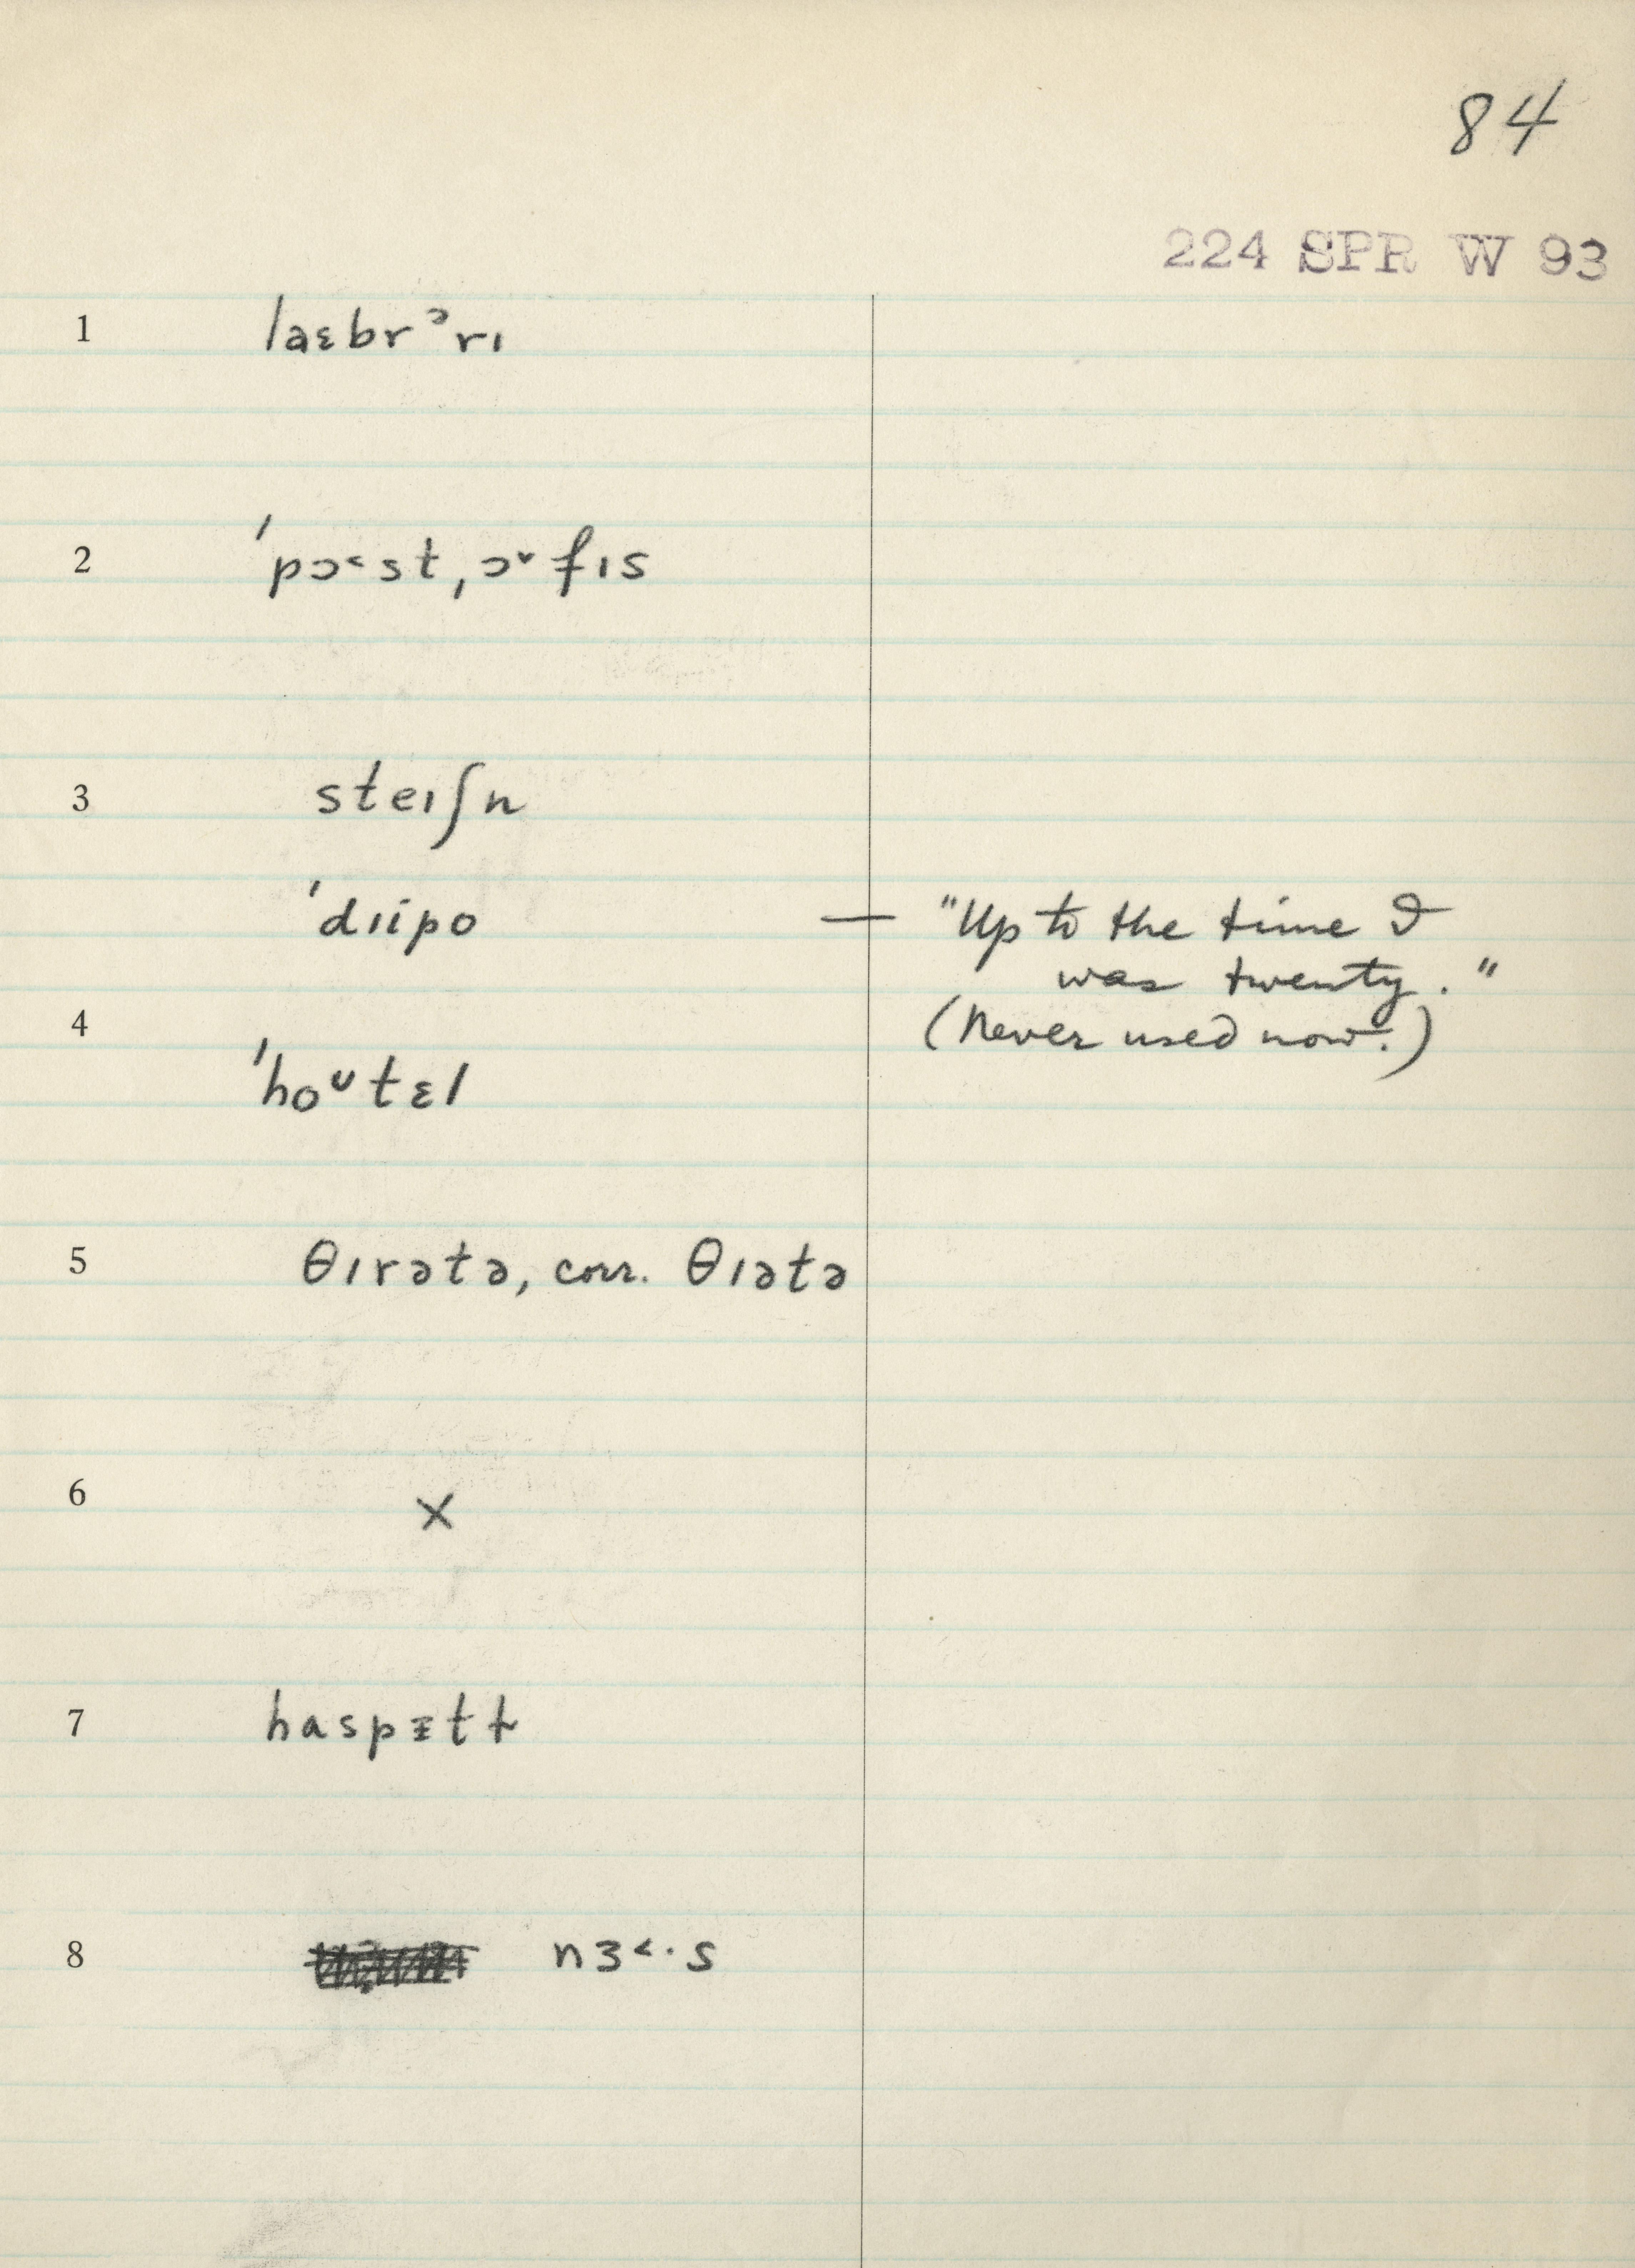 84
224 SPR W 93
1 laɛbrᵊrı
2 ˈpɔ˂st,ɔ˅fıs
3 steıʃn
ˈdıipo — "Up to the time I
was twenty."
4 (Never used now.)
ˈhoᶷtɛl
5 θırətə, corr. θıətə
6 ×
7 haspᵻtɫ
8 nɜ˂·s